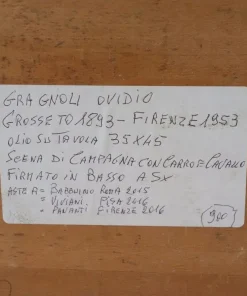 GRAGNOLI OVIDIO
GROSSETO 1893 - FIRENZE 1953
OLIO SU TAVOLA 35X45
SCENA DI CAMPAGNA CON CARRO E CAVALLO
FIRMATO IN BASSO A SX
ASTE A = BABBUINO ROMA 2015
" = VIVIANI PISA 2016
" = PANANTI FIRENZE 2016
900